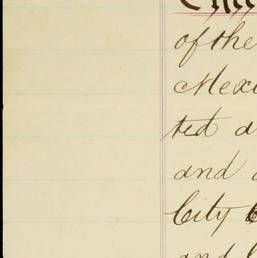 of the
Mexi
ted a
and
City
and